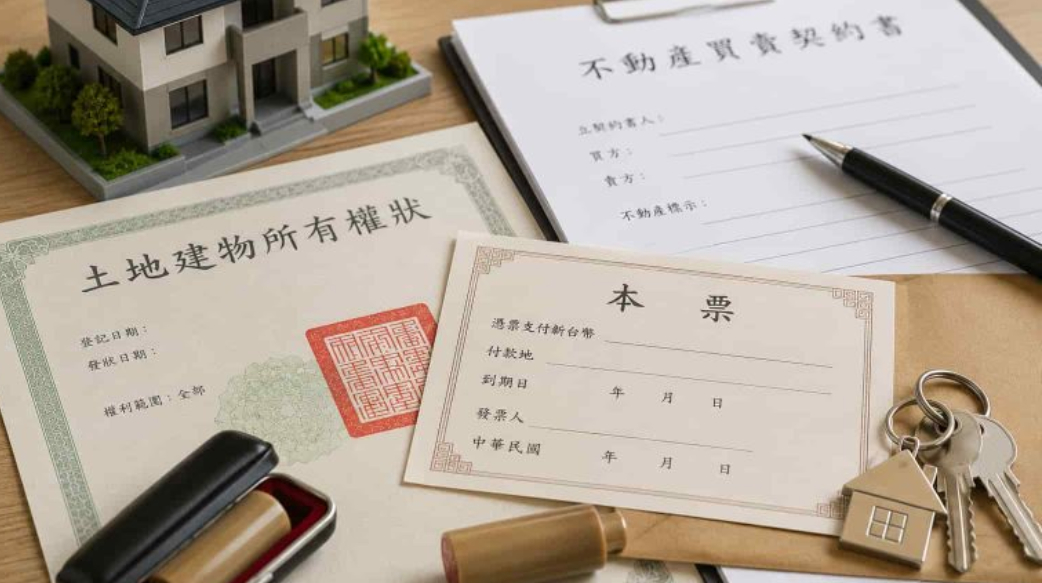 不動產買賣契約書
立契約書人：
買方：
賣方：
不動產標示：
土地建物所有權狀
登記日期：
發狀日期：
權利範圍：全部
本票
憑票支付新台幣
付款地
到期日 年 月 日
發票人
中華民國 年 月 日